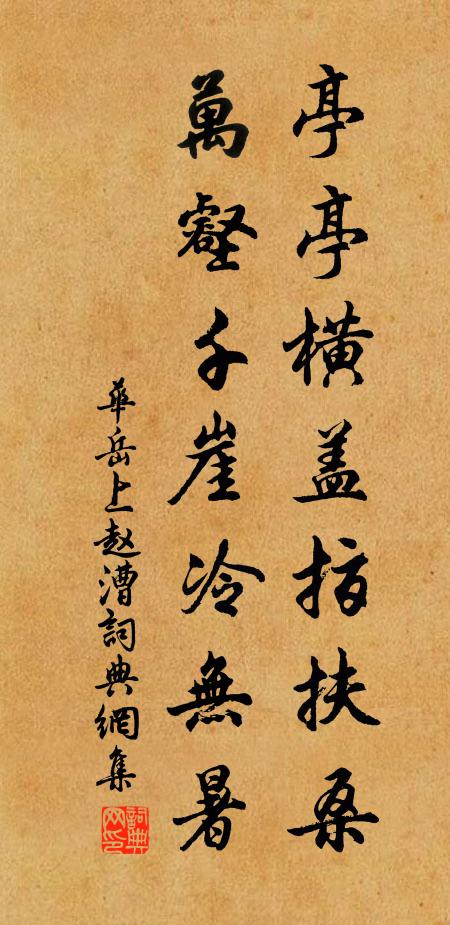 亭亭橫盖指扶桑
萬壑千崖冷無暑
華岳上赵漕詞典網集
詞典网印